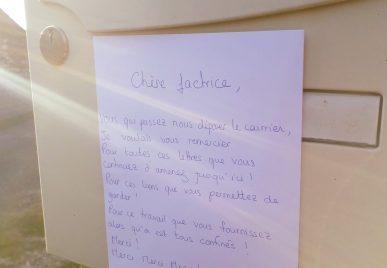 Chère factrice,
Vous qui passez nous déposer le courrier,
Je voulais vous remercier
Pour toutes ces lettres que vous
continuez d'amener jusqu'ici !
Pour ces liens que vous permettez de
garder !
Pour ce travail que vous fournissez
alors qu'on est tous confinés !
Merci !
Merci Merci